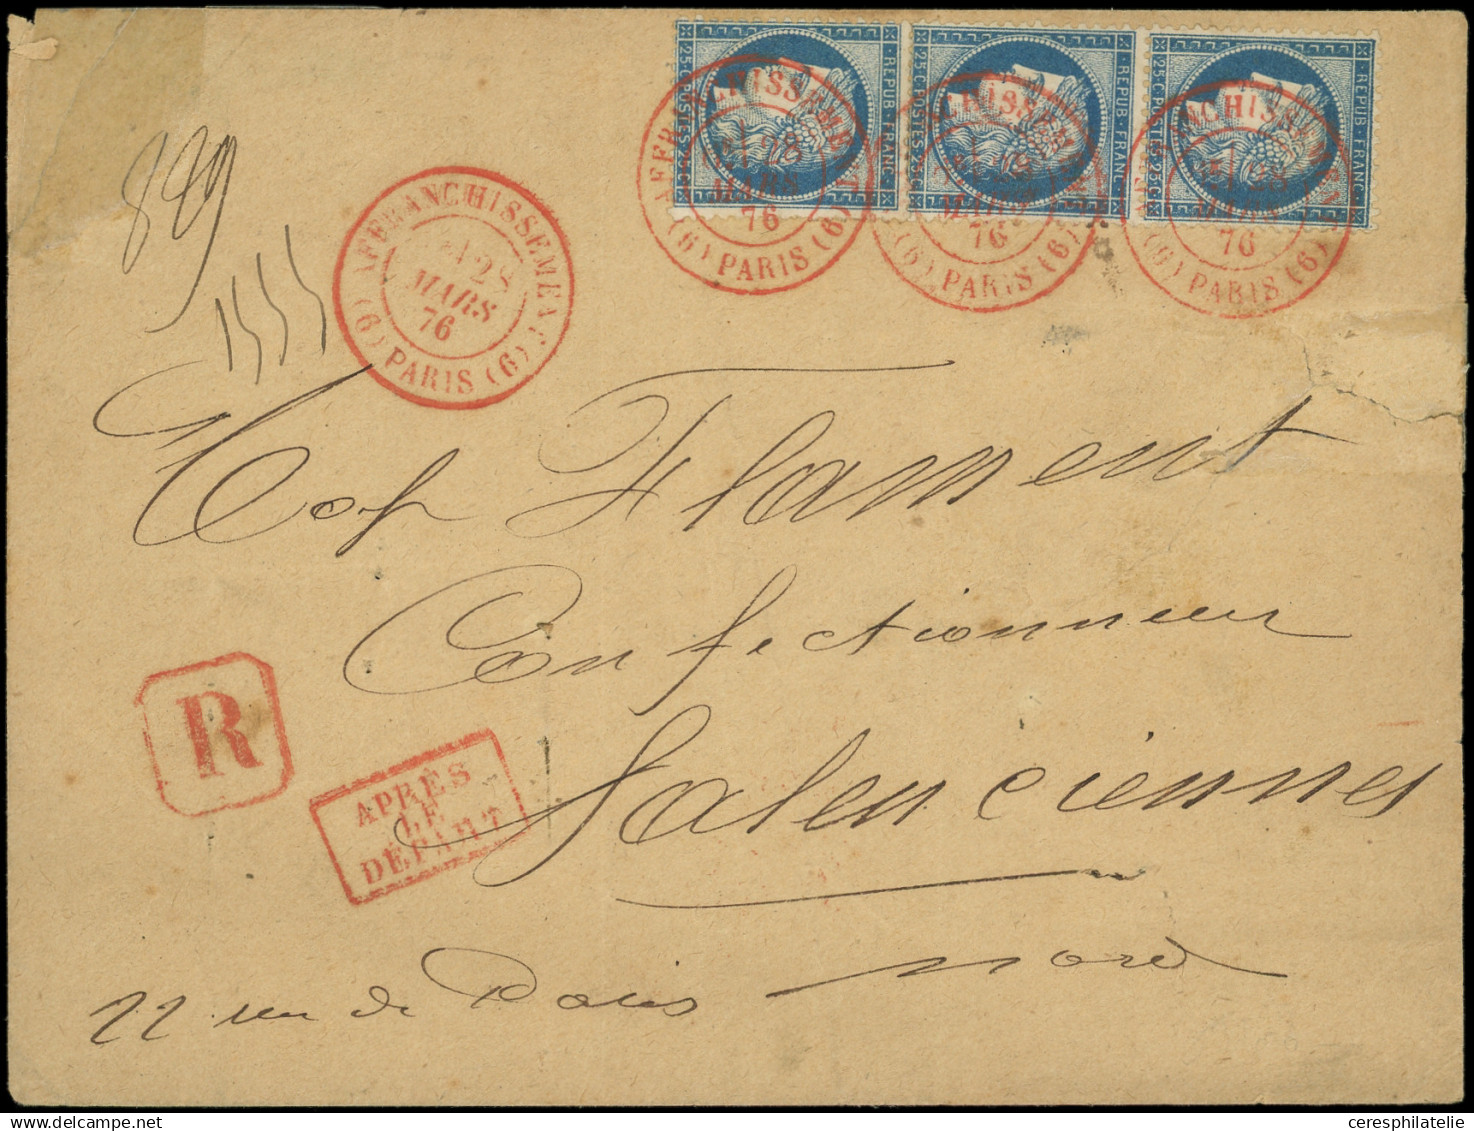 25 C POSTES 25 C REPUB. FRANC.
25 C POSTES 25 C REPUB. FRANC.
25 C POSTES 25 C REPUB. FRANC.
AFFRANCHISSEMENT 28 MARS 76 (6) PARIS (6)
CHISSEM 28 MARS 76 (6) PARIS (6)
NCHISSEM 28 MARS 76 (6) PARIS (6)
899
AFFRANCHISSEMENT 28 MARS 76 (6) PARIS (6)
Flament
Confectionneur
Valenciennes
R
APRÈS
LE
DÉPART
Nord
22 rue de Paris
ceresphilatelie.com